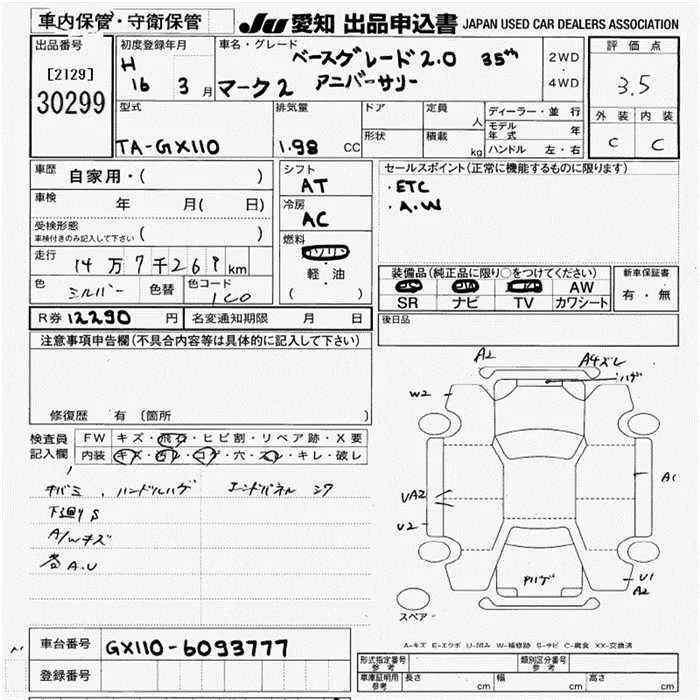 車内保管・守衛保管 JU 愛知 出品申込書 JAPAN USED CAR DEALERS ASSOCIATION
出品番号
[2129]
30299
初度登録年月
H
16 3 月
車名・グレード
ベースグレード2.0 35th
マーク2 アニバーサリー
2WD
・
4WD
評価点
3.5
外装 内装
C C
型式
TA-GX110
排気量
1.98 CC
ドア
形状
定員
人
積載
kg
ディーラー・並行
モデル年式 年
ハンドル 左・右
車歴 自家用・( )
車検 年 月( 日)
受検形態
車検付きのみ記入して下さい ( )
走行 14万7千269km
色 シルバー 色替 色コード 1C0
シフト
AT
冷房
AC
燃料
ガソリン
軽・油
( )
セールスポイント(正常に機能するものに限ります)
・ETC
・A.W
装備品(純正品に限り○をつけてください)
AW
SR ナビ TV カワシート
新車保証書
有・無
R券 12290 円 名変通知期限 月 日
後日品
注意事項申告欄(不具合内容等は具体的に記入して下さい)
修復歴 有 (箇所
検査員
記入欄
FW キズ・飛石・ヒビ割・リペア跡・X要
内装 キズ・汚レ・コゲ・穴・スレ・キレ・破レ
キバミ、ハンドルハゲ エンドパネル シワ
下廻りS
A/Wキズ
A.U
A2
A4ズレ
ハゲ
W2
UA2
U2
A1
Pハゲ
U1
A2
スペア
A-キズ E-エクボ U-凹み W-補修跡 S-サビ C-腐食 XX-交換済
車台番号 GX110-6093777
登録番号
形式指定番号
参考
類別区分番号
参考
車庫証明用
参考
長さ cm 幅 cm 高さ cm